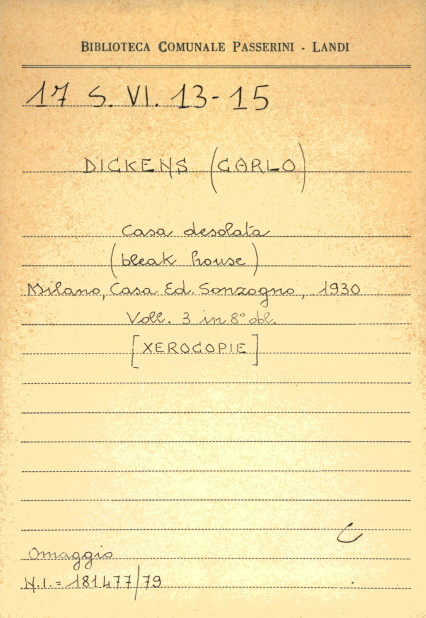 BIBLIOTECA COMUNALE PASSERINI - LANDI
17 S. VI. 13-15
DICKENS (CARLO)
Casa desolata
(bleak house)
Milano, Casa Ed. Sonzogno, 1930
Voll. 3 in 8° obl.
[XEROCOPIE]
C
Omaggio
N.I. = 181477/79